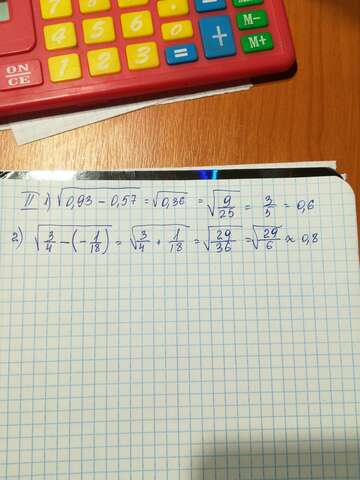 ON
CE
4 5 6
1 2 3 = + M-
M+
II 1) √0,93 - 0,57 = √0,36 = √9/25 = 3/5 = 0,6
2) √3/4 - (-1/18) = √3/4 + 1/18 = √29/36 = √29/6 ≈ 0,8